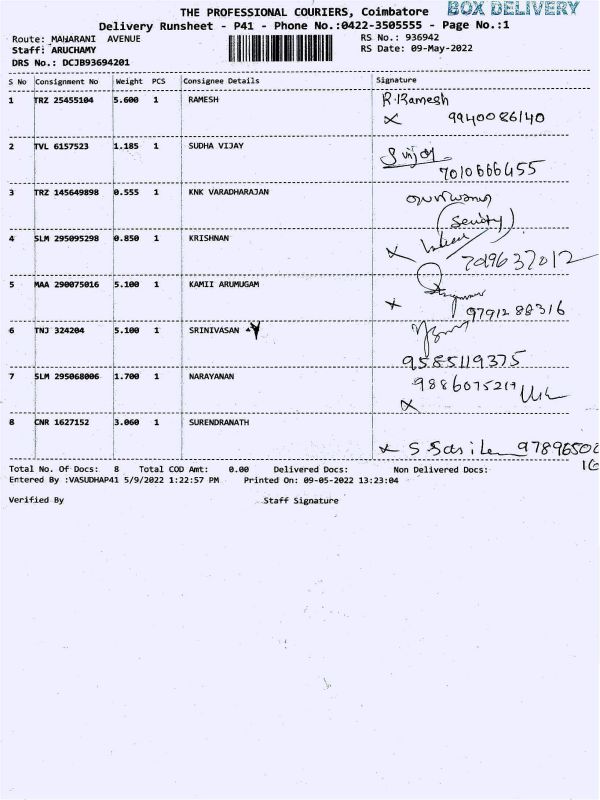 THE PROFESSIONAL COURIERS, Coimbatore BOX DELIVERY
Delivery Runsheet - P41 - Phone No.:0422-3505555 - Page No.:1
Route: MAHARANI AVENUE RS No.: 936942
Staff: ARUCHAMY RS Date: 09-May-2022
DRS No.: DCJB93694201
S No Consignment No Weight PCS Consignee Details Signature
1 TRZ 25455104 5.600 1 RAMESH R.Ramesh
9940086140
2 TVL 6157523 1.185 1 SUDHA VIJAY
7010666455
3 TRZ 145649898 0.555 1 KNK VARADHARAJAN
4 SLM 295095298 0.850 1 KRISHNAN
7019637012
5 MAA 290075016 5.100 1 KAMII ARUMUGAM
9791288316
6 TNJ 324204 5.100 1 SRINIVASAN
9585119375
7 SLM 295068006 1.700 1 NARAYANAN
8 CNR 1627152 3.060 1 SURENDRANATH
97896502
16
Total No. Of Docs: 8 Total COD Amt: 0.00 Delivered Docs: Non Delivered Docs:
Entered By :VASUDHAP41 5/9/2022 1:22:57 PM Printed On: 09-05-2022 13:23:04
Verified By Staff Signature